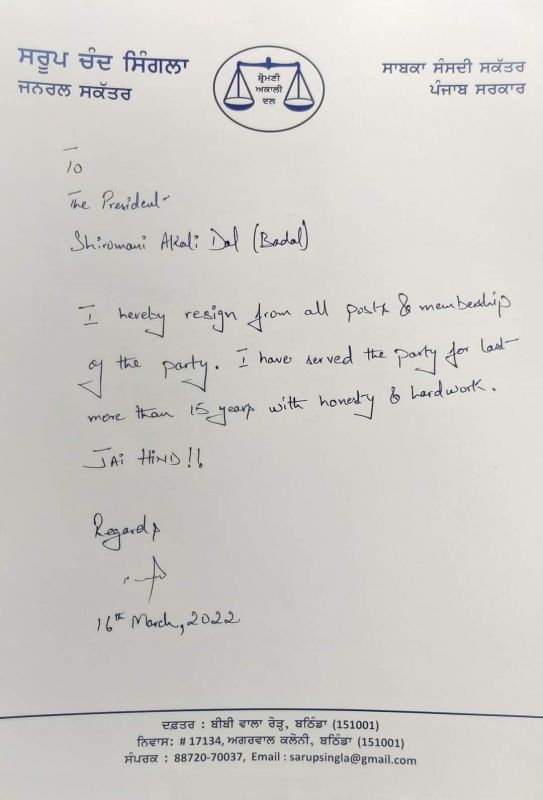 ਸਰੂਪ ਚੰਦ ਸਿੰਗਲਾ
ਜਨਰਲ ਸਕੱਤਰ
ਸ਼੍ਰੋਮਣੀ
ਅਕਾਲੀ
ਦਲ
ਸਾਬਕਾ ਸੰਸਦੀ ਸਕੱਤਰ
ਪੰਜਾਬ ਸਰਕਾਰ
To
The President
Shiromani Akali Dal (Badal)
I hereby resign from all posts & membership
of the party. I have served the party for last
more than 15 years with honesty & hardwork.
JAI HIND!!
Regards
16th March, 2022
ਦਫ਼ਤਰ : ਬੀਬੀ ਵਾਲਾ ਰੋਡ, ਬਠਿੰਡਾ (151001)
ਨਿਵਾਸ: # 17134, ਅਗਰਵਾਲ ਕਲੋਨੀ, ਬਠਿੰਡਾ (151001)
ਸੰਪਰਕ : 88720-70037, Email : sarupsingla@gmail.com